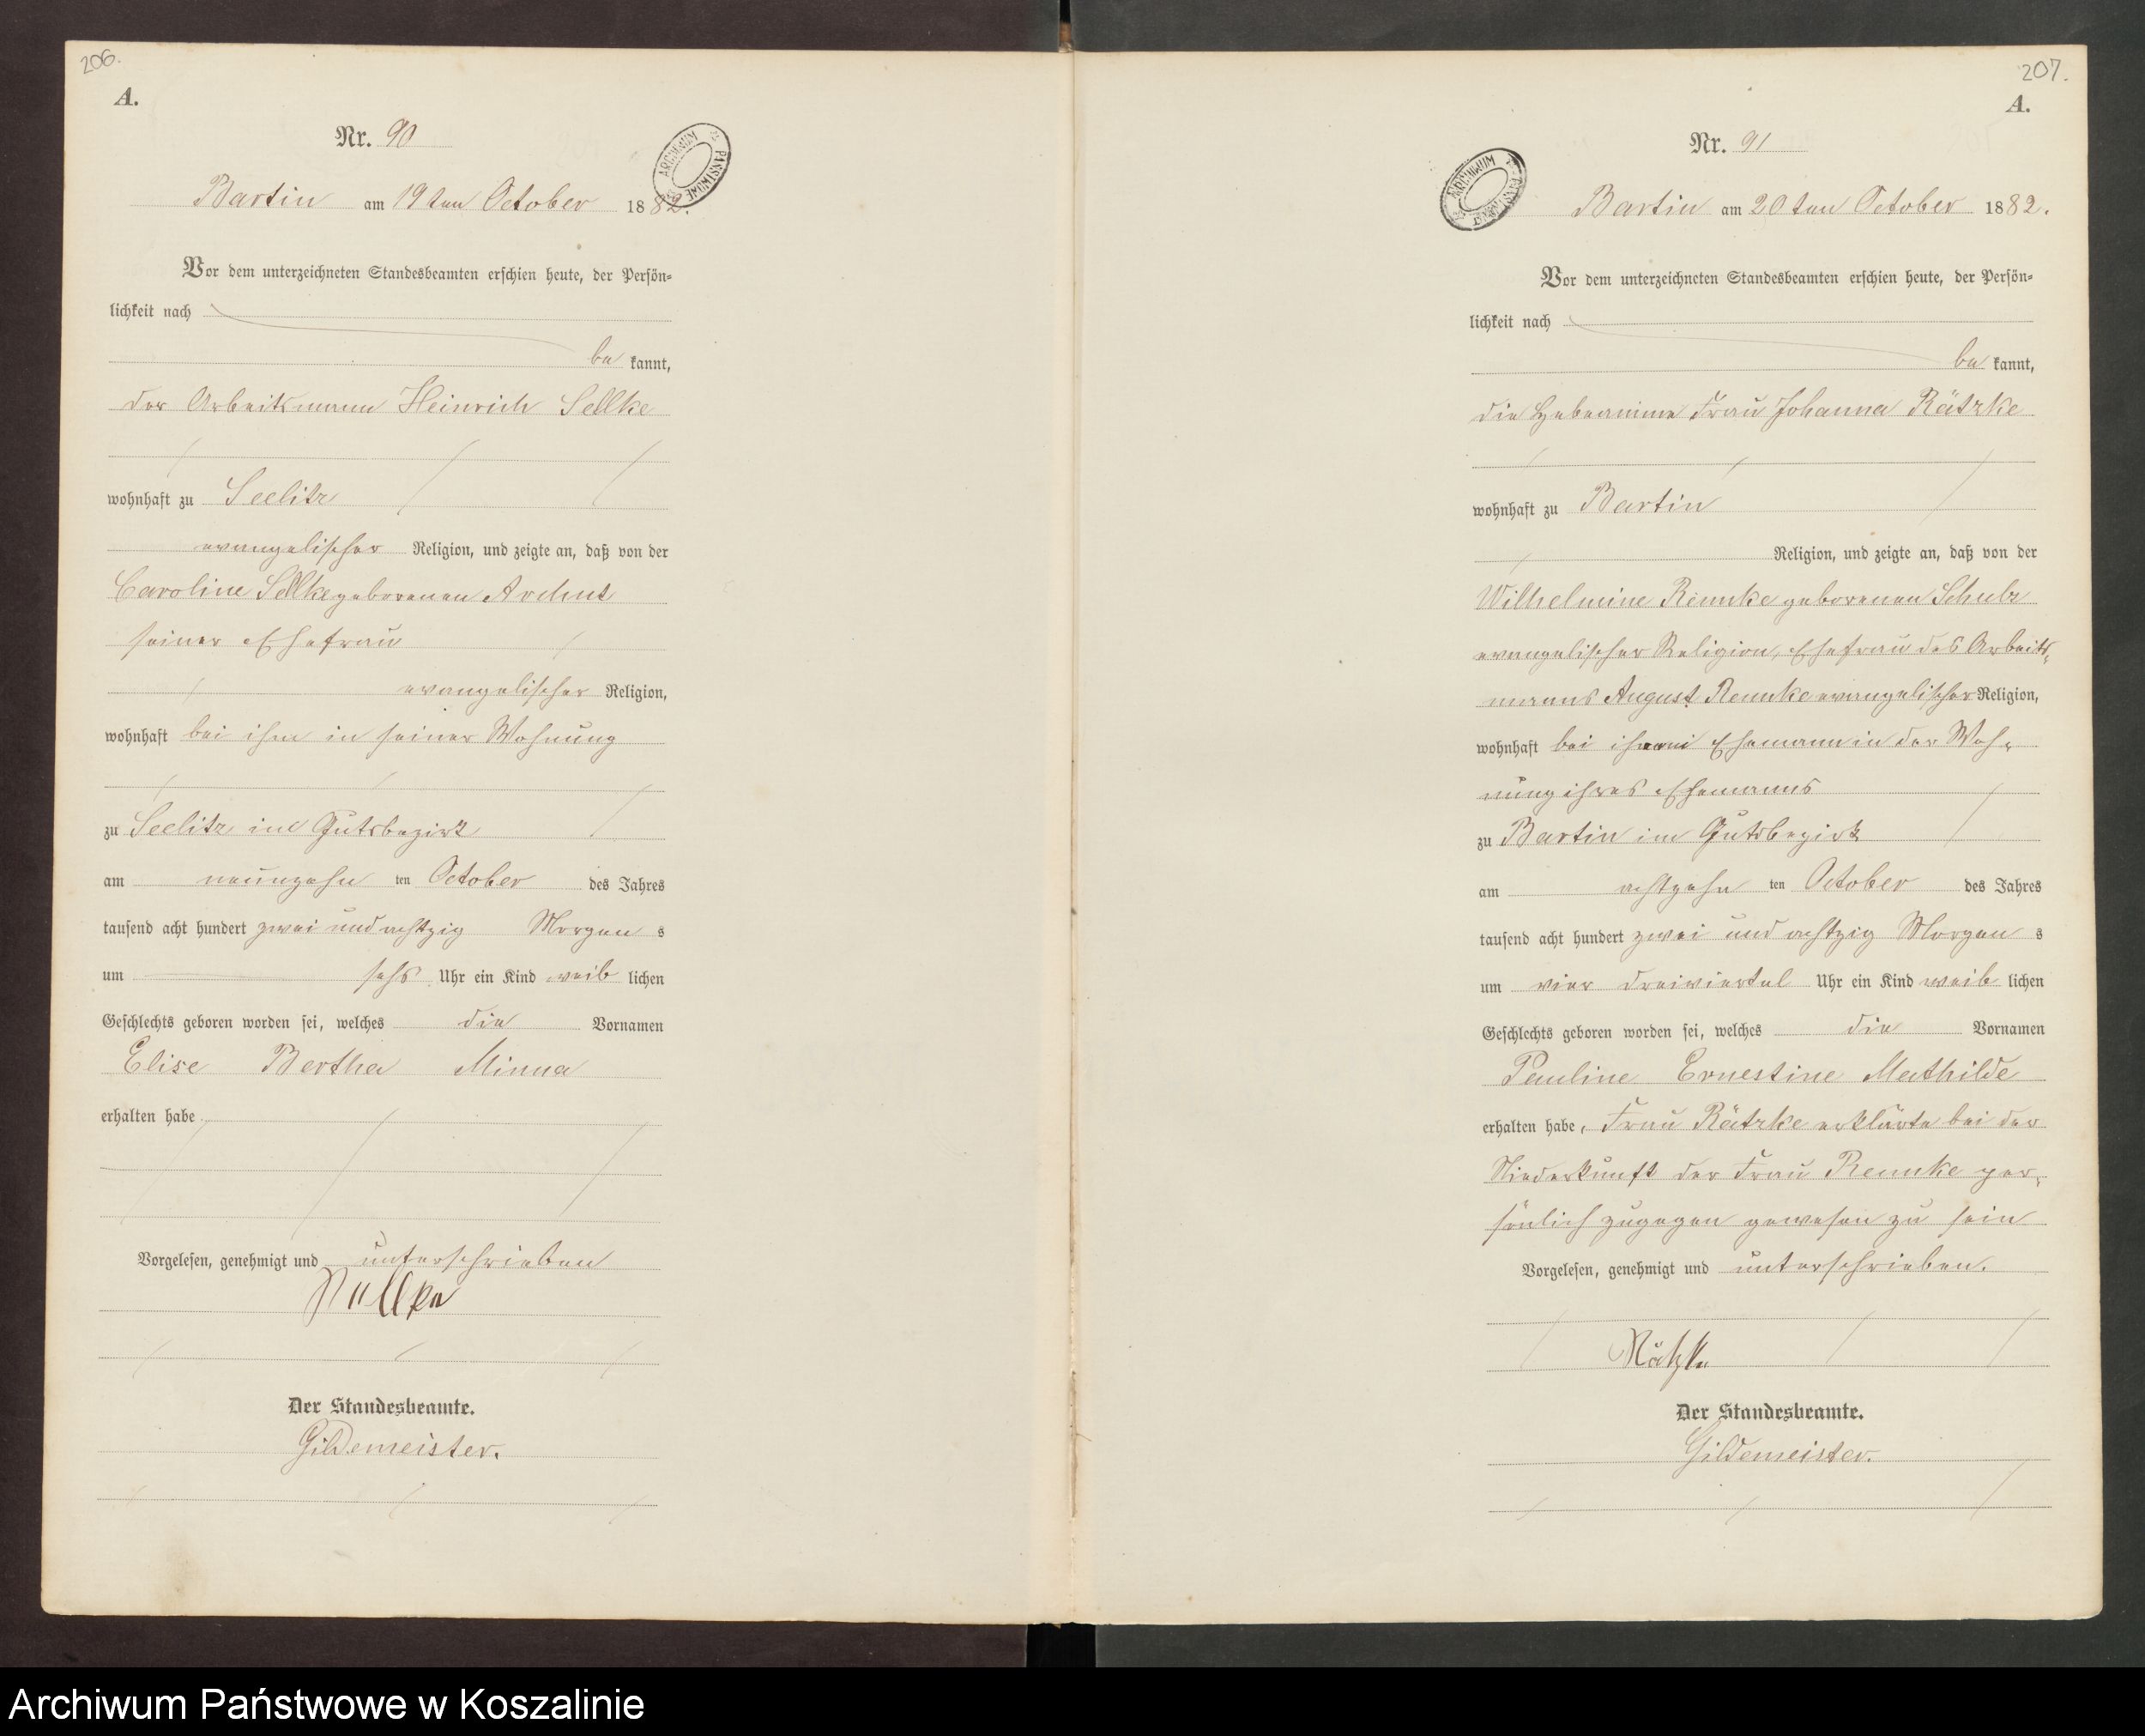 206.
A.
Nr. 90
ARCHIWUM PAŃSTWOWE
Bartin am 19ten October 1882.
Vor dem unterzeichneten Standesbeamten erschien heute, der Persön-
lichkeit nach
be kannt,
der Arbeitsmann Heinrich Sellke
wohnhaft zu Seelitz
evangelischer Religion, und zeigte an, daß von der
Caroline Sellke geborenen
seiner Ehefrau
evangelischer Religion,
wohnhaft bei ihm in seiner Wohnung
zu Seelitz im Gutsbezirk
am neunzehn ten October des Jahres
tausend acht hundert zwei und achtzig Morgen s
um sechs Uhr ein Kind weib lichen
Geschlechts geboren worden sei, welches die Vornamen
Elise Bertha Minna
erhalten habe
Vorgelesen, genehmigt und unterschrieben
Der Standesbeamte.
Gildemeister.
207.
A.
Nr. 91
ARCHIWUM
Bartin am 20ten October 1882.
Vor dem unterzeichneten Standesbeamten erschien heute, der Persön-
lichkeit nach
be kannt,
die Hebeamme Frau Johanna Rätzke
wohnhaft zu Bartin
Religion, und zeigte an, daß von der
Wilhelmine Rennke geborenen Schulz
evangelischer Religion, Ehefrau des Arbeits-
manns August Rennke evangelischer Religion,
wohnhaft bei ihrem Ehemann in der Woh-
nung ihres Ehemanns
zu Bartin im Gutsbezirk
am achtzehn ten October des Jahres
tausend acht hundert zwei und achtzig Morgen s
um vier dreiviertel Uhr ein Kind weib lichen
Geschlechts geboren worden sei, welches die Vornamen
Pauline Ernestine Mathilde
erhalten habe, Frau Rätzke erklärte bei der
Niederkunft der Frau Rennke per-
sönlich zugegen gewesen zu sein
Vorgelesen, genehmigt und unterschrieben.
Rätzke
Der Standesbeamte.
Gildemeister.
Archiwum Państwowe w Koszalinie